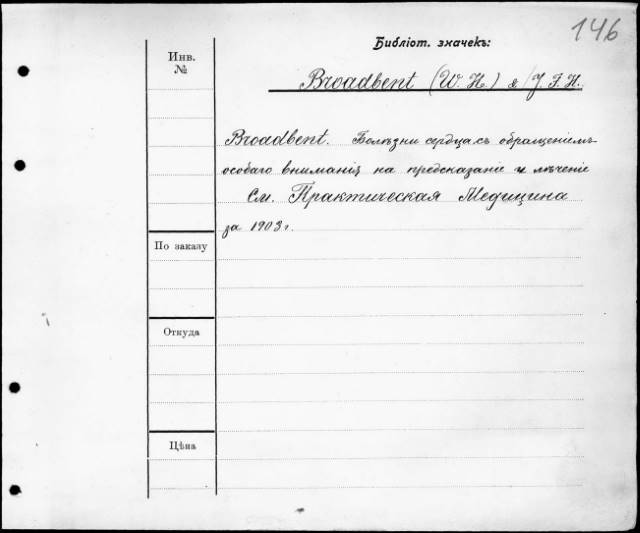 146
Библіот. значекъ:
Инв.
№
Broadbent (W. H.) & J. F. H.
Broadbent. Болѣзни сердца съ обращеніемъ
особаго вниманія на предсказаніе и лѣченіе
См. Практическая Медицина
за 1903 г.
По заказу
Откуда
Цѣна